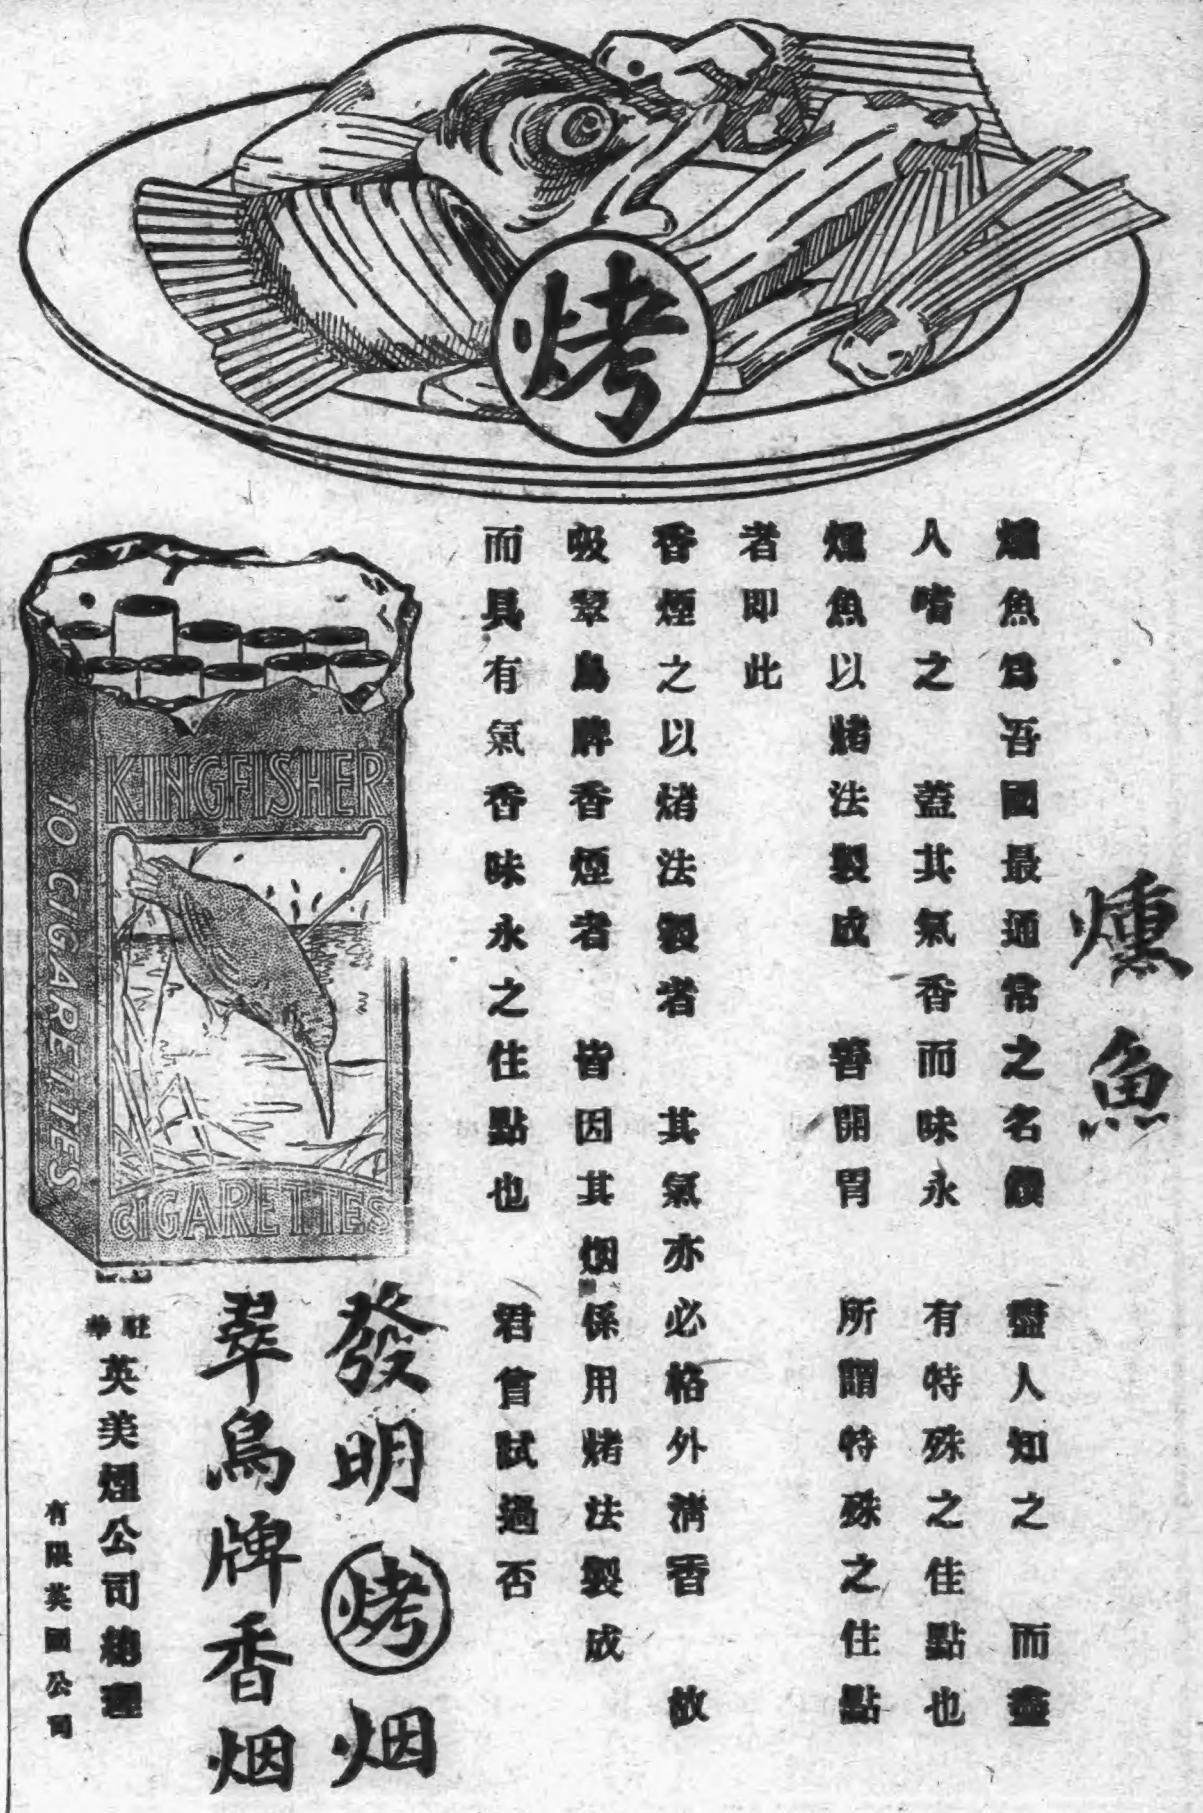 烤
燻魚
燻魚爲吾國最通常之名饌 盡人知之 而盡
人嗜之 蓋其氣香而味永 有特殊之佳點也
燻魚以烤法製成 善開胃 所謂特殊之佳點
者即此
香煙之以烤法製者 其氣亦必格外清香 故
吸翠鳥牌香煙者 皆因其烟係用烤法製成
而具有氣香味永之佳點也 君曾試過否
KINGFISHER
10 CIGARETTES
CIGARETTES
發明烤烟
翠鳥牌香烟
駐華英美煙公司總理
有限英國公司